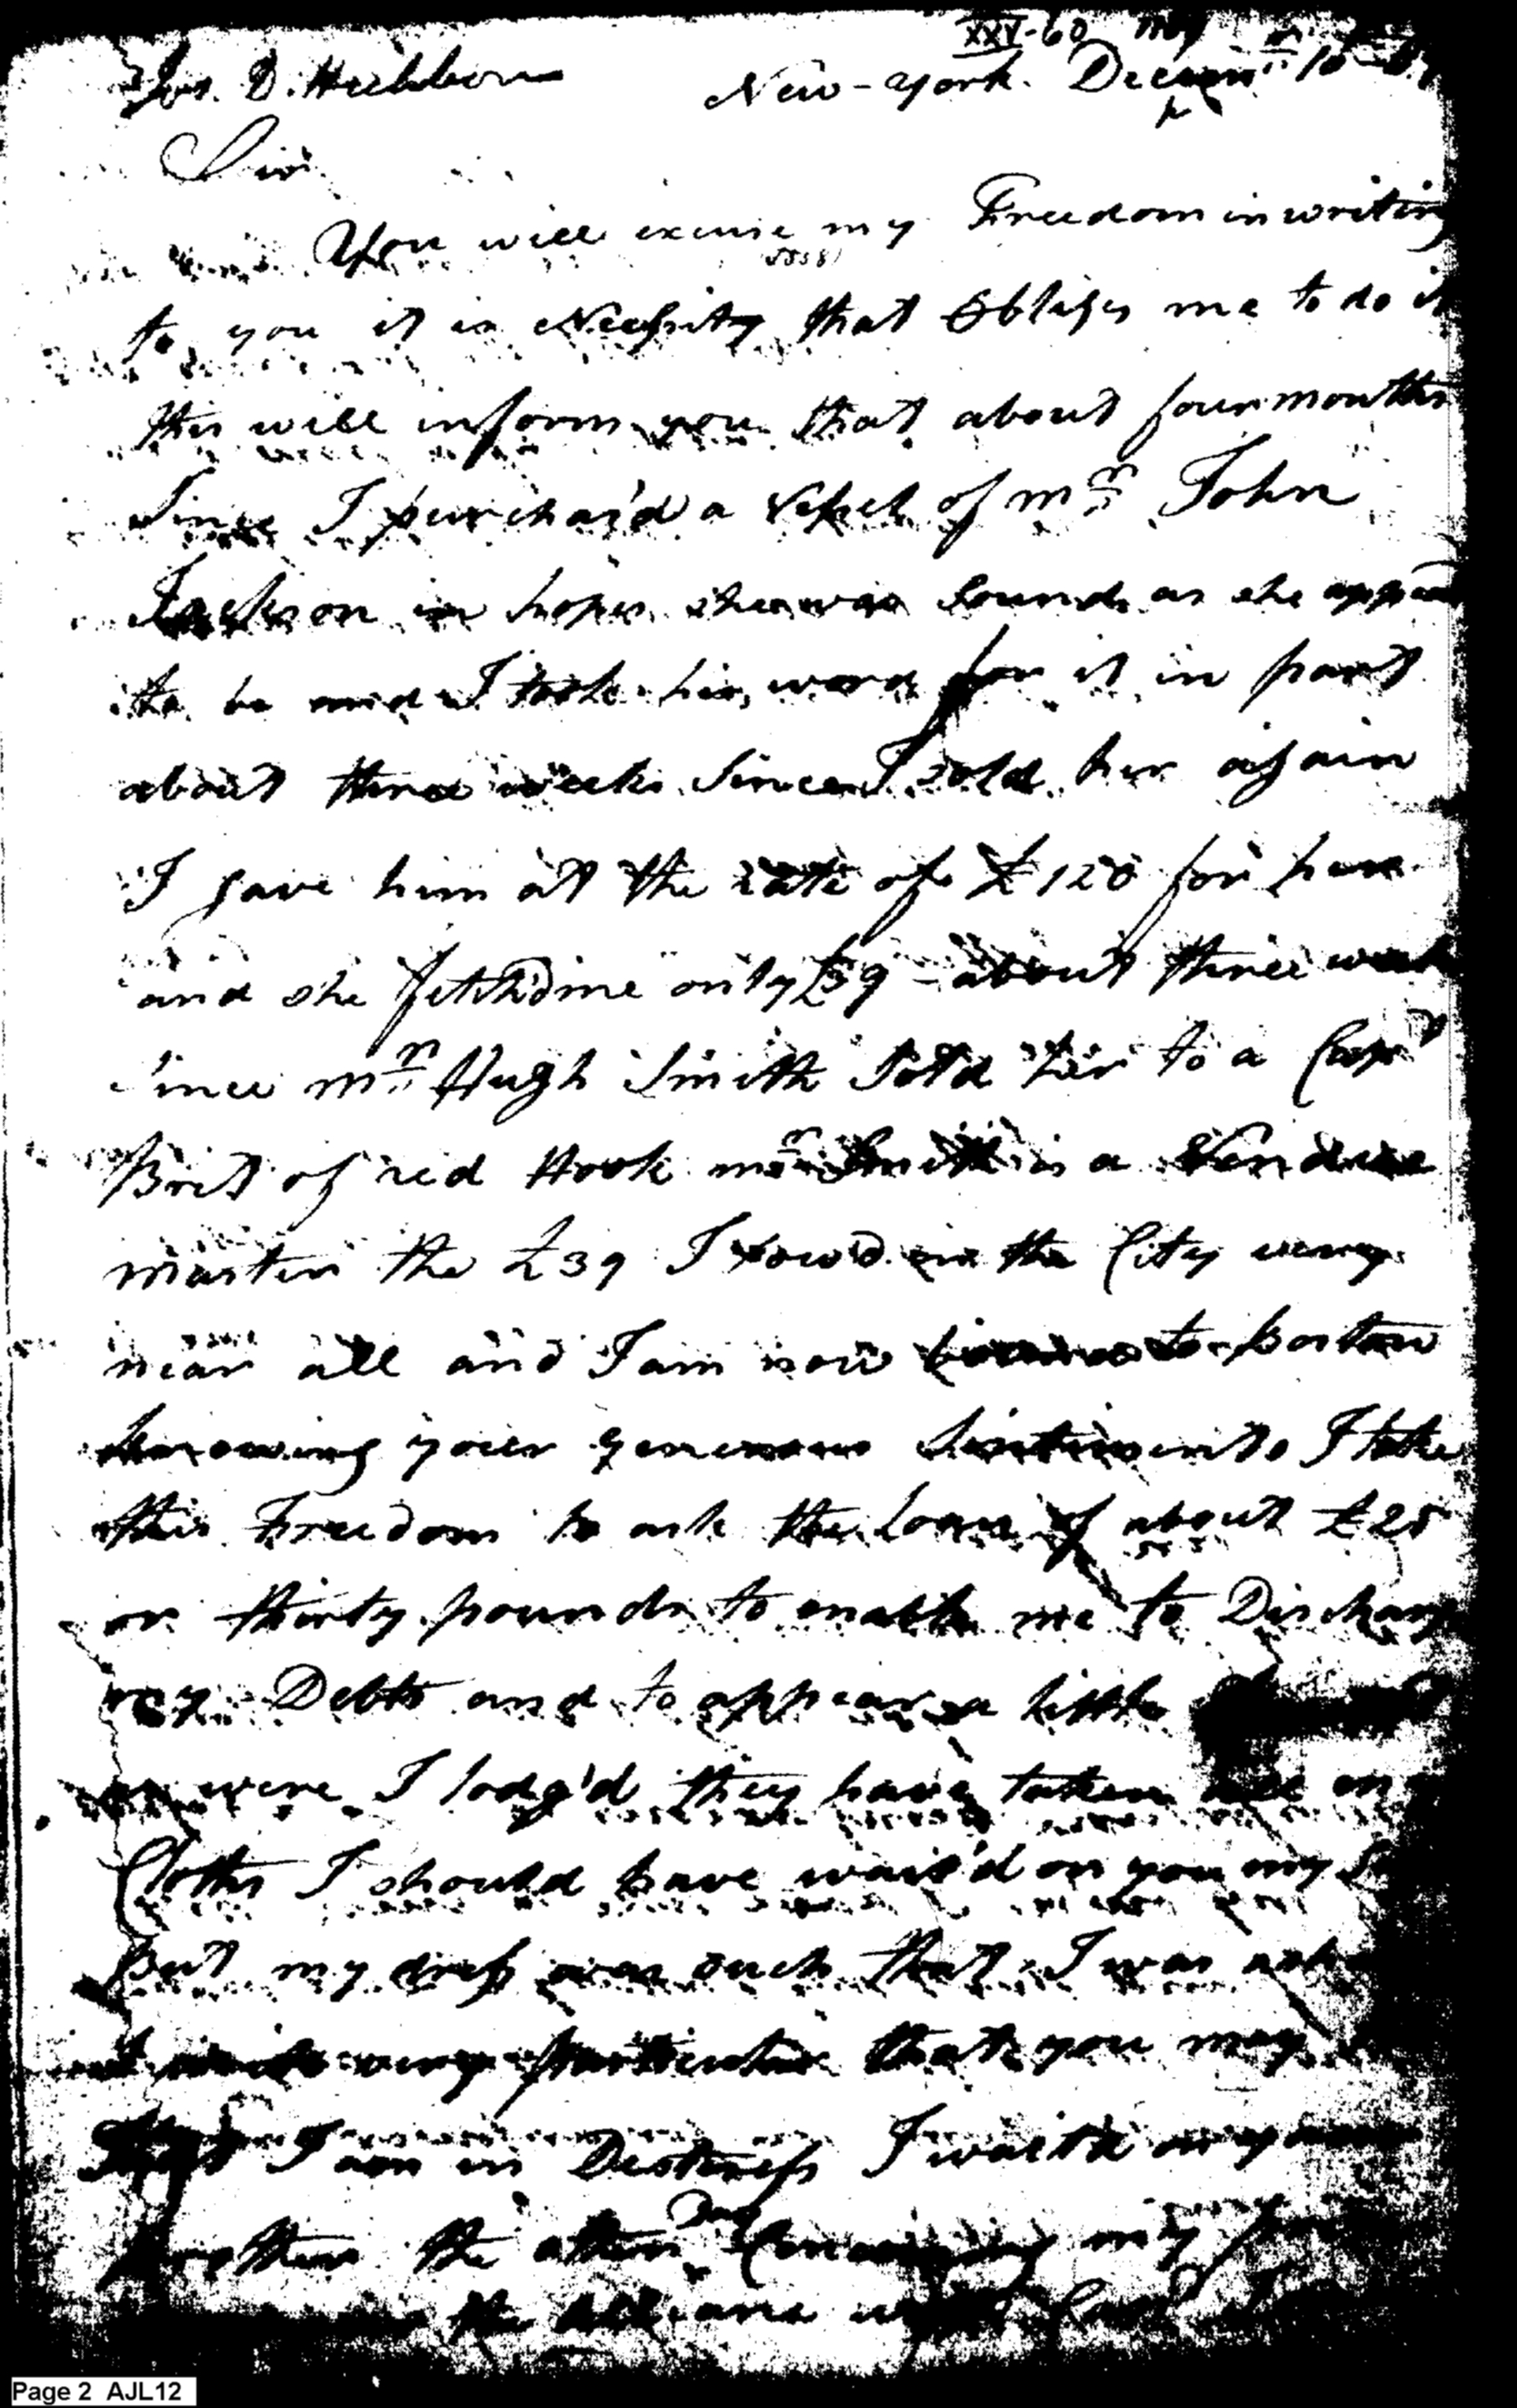 XXV-60
Jos. D. Hebbern New-York. Decem 10
Sir
You will excuse my Freedom in writing
to you it is Necessity that Obliges me to do it
this will inform you that about four months
Since I purchas'd a Vessel of Mr. John
Jackson in hopes she was Sound as she appear
to be and I took his word for it in part
about three weeks Since I sold her again
I gave him at the rate of £120 for her
and she fetch'd me only £39 - about three week
Since Mr. Hugh Smith Sold her to a Capt
Brit of red Hook Mr. Smith is a Vendue
master the £39 I ow'd in the City very
near all and I am now to Boston
knowing your generous Sentiments I take
this Freedom to ask the Loan of about £25
or thirty pounds to enable me to Discharge
my Debts and to appear a little
were I lodg'd they have taken all my
Cloths I should have wait'd on you my
But my dress was such that I was
very particular that you may
that I am in Destress I wait'd on your
brother the other Day
the Alliance Capt
Page 2 AJL12